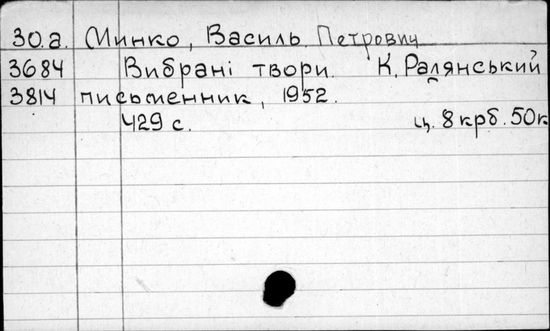 30.а. Минко, Василь Петрович
3684 Вибрані твори. К. Радянський
3814 письменник, 1952.
429 с. ц. 8 крб. 50к